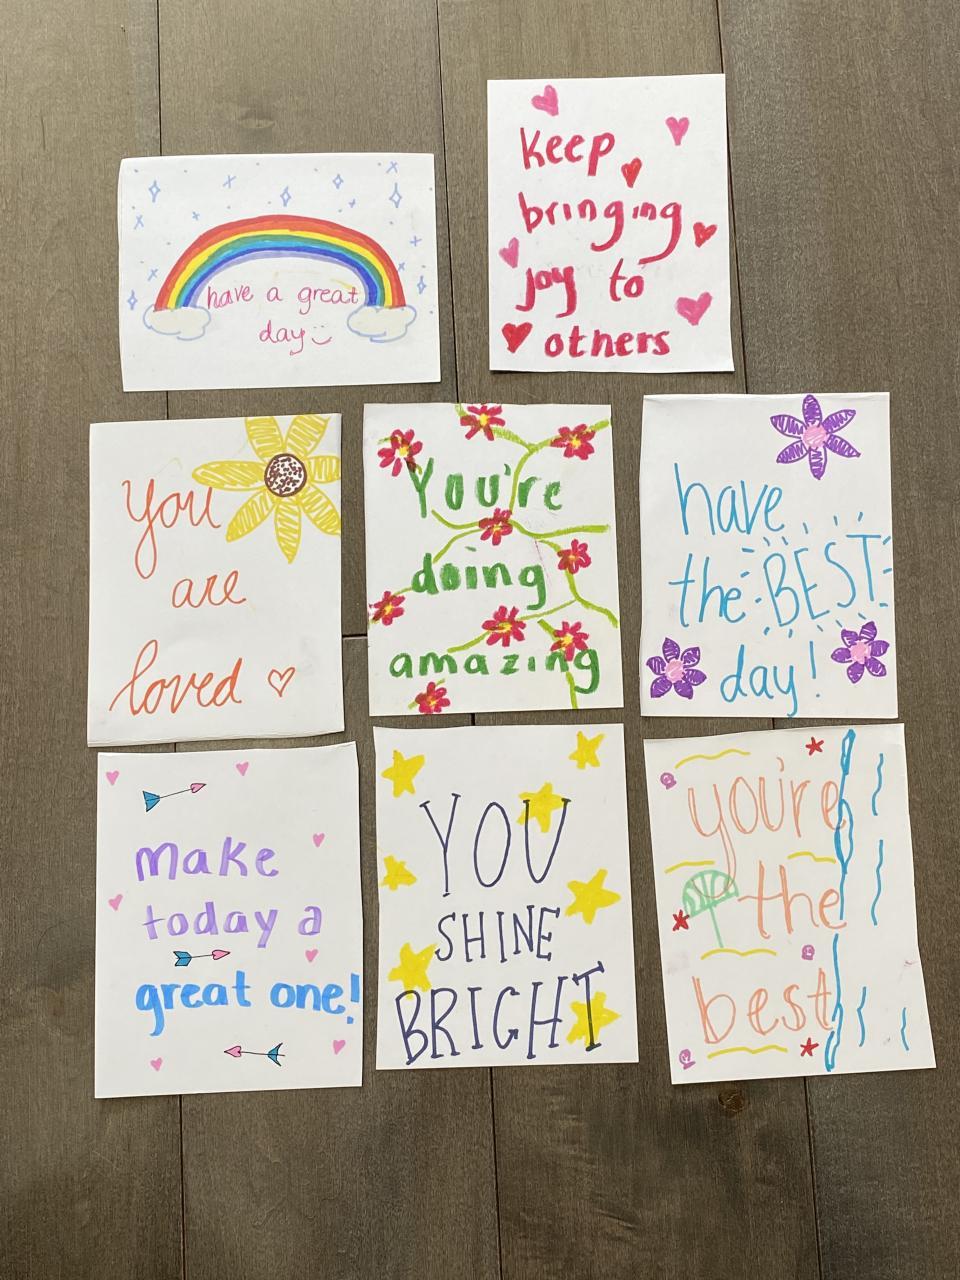 have a great
day
Keep
bringing
joy to
others
you
are
loved
You're
doing
amazing
have
the BEST
day!
Make
today a
great one!
YOU
SHINE
BRIGHT
you're
the
best